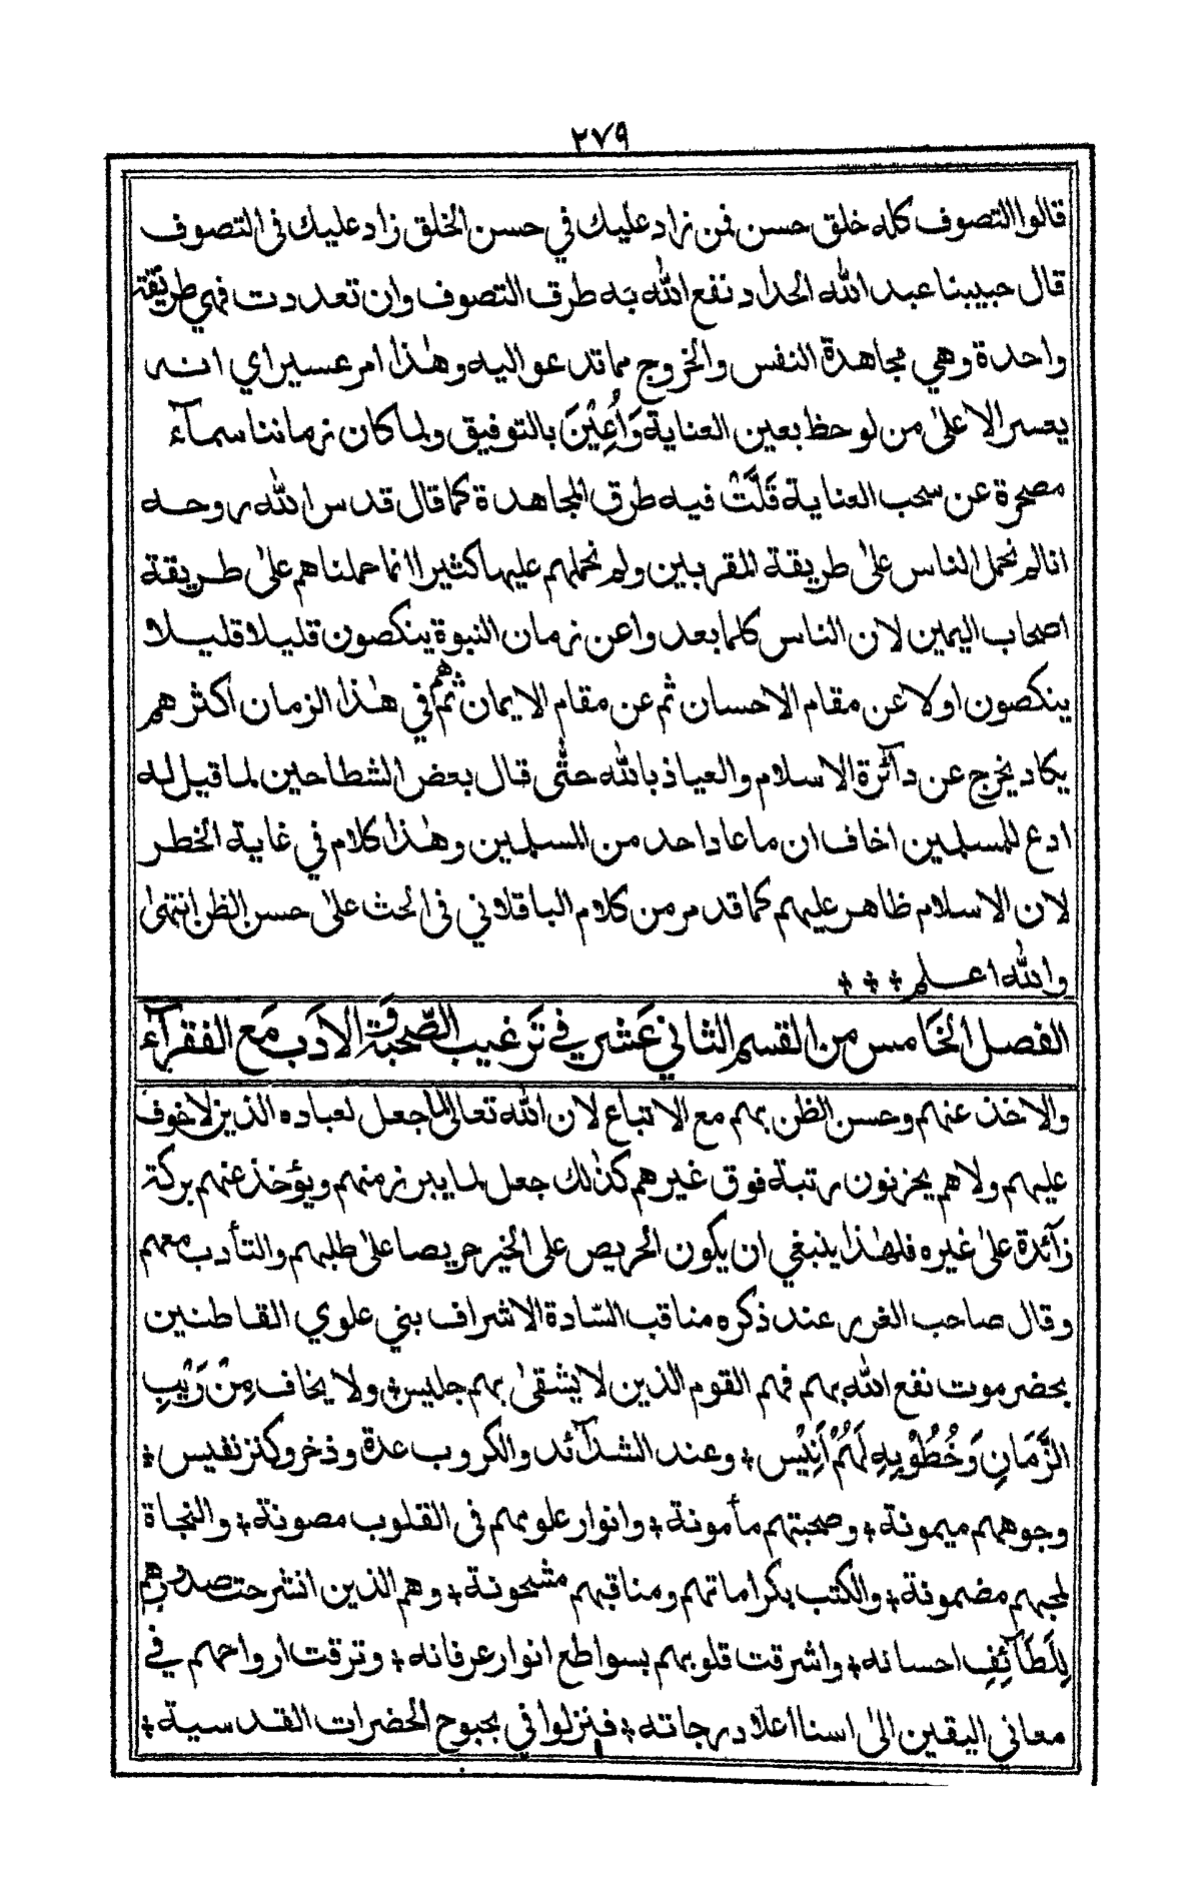 ٢٧٩
قالوا التصوف كله خلق حسن فمن زاد عليك في حسن الخلق زاد عليك فى التصوف
قال حبيبنا عبد الله الحداد نفع الله به طرق التصوف وان تعددت فهي طريقة
واحدة وهي مجاهدة النفس والخروج مما تدعو اليه وهٰذا امر عسير اي انه
يعسر الا علىٰ من لوحظ بعين العناية وَاُعِيْنَ بالتوفيق ولما كان زماننا سمآء
مصحرة عن سحب العناية قَلَّتْ فيه طرق المجاهدة كما قال قدس الله روحه
انا لم نحمل الناس علىٰ طريقة المقربين ولم نحملهم عليها كثيرا انما حملناهم علىٰ طريقة
اصحاب اليمين لان الناس كلما بعدوا عن زمان النبوة ينكصون قليلا قليلا
ينكصون اولا عن مقام الاحسان ثم عن مقام الايمان ثم هم في هٰذا الزمان اكثرهم
يكاد يخرج عن دآئرة الاسلام والعياذ بالله حتّٰى قال بعض الشطاحين لما قيل له
ادع للمسلمين اخاف ان ما عاد احد من المسلمين وهٰذا كلام في غاية الخطر
لان الاسلام ظاهر عليهم كما قد مر من كلام الباقلاني فى الحث علىٰ حسن الظن انتهىٰ
والله اعلم ✢ ✢ ✢
الفصل الخَامس من القسم الثاني عَشر في تَرغيب الصّحبة والادَب مَع الفقرآء
والاخذ عنهم وحسن الظن بهم مع الاتباع لان الله تعالىٰ لما جعل لعباده الذين لا خوف
عليهم ولا هم يحزنون رتبة فوق غيرهم كذٰلك جعل لما يبرز منهم ويؤخذ عنهم بركة
زآئدة علىٰ غيره فلهٰذا ينبغي ان يكون الحريص على الخير حريصا علىٰ طلبهم والتأدب معهم
وقال صاحب الغرر عند ذكره مناقب السّادة الاشراف بني علوي القاطنين
بحضرموت نفع الله بهم فهم القوم الذين لا يشقىٰ بهم جليس ✢ ولا يخاف مِنْ رَيْبِ
الزَّمَانِ وَخُطُوْبِهِ لَهُمْ اَنِيْس ✢ وعند الشدآئد والكروب عدة وذخر وكنز نفيس ✢
وجوههم ميمونة ✢ وصحبتهم مأمونة ✢ وانوار علومهم فى القلوب مصونة ✢ والنجاة
لمحبهم مضمونة ✢ والكتب بكراماتهم ومناقبهم مشحونة ✢ وهم الذين انشرحت صدورهم
لِلَطَآئِفِ احسانه ✢ واشرقت قلوبهم بسواطع انوار عرفانه ✢ وترقت ارواحهم في
معاني اليقين الىٰ اسنا اعلا درجاته ✢ فنزلوا في بحبوح الحضرات القدسية ✢